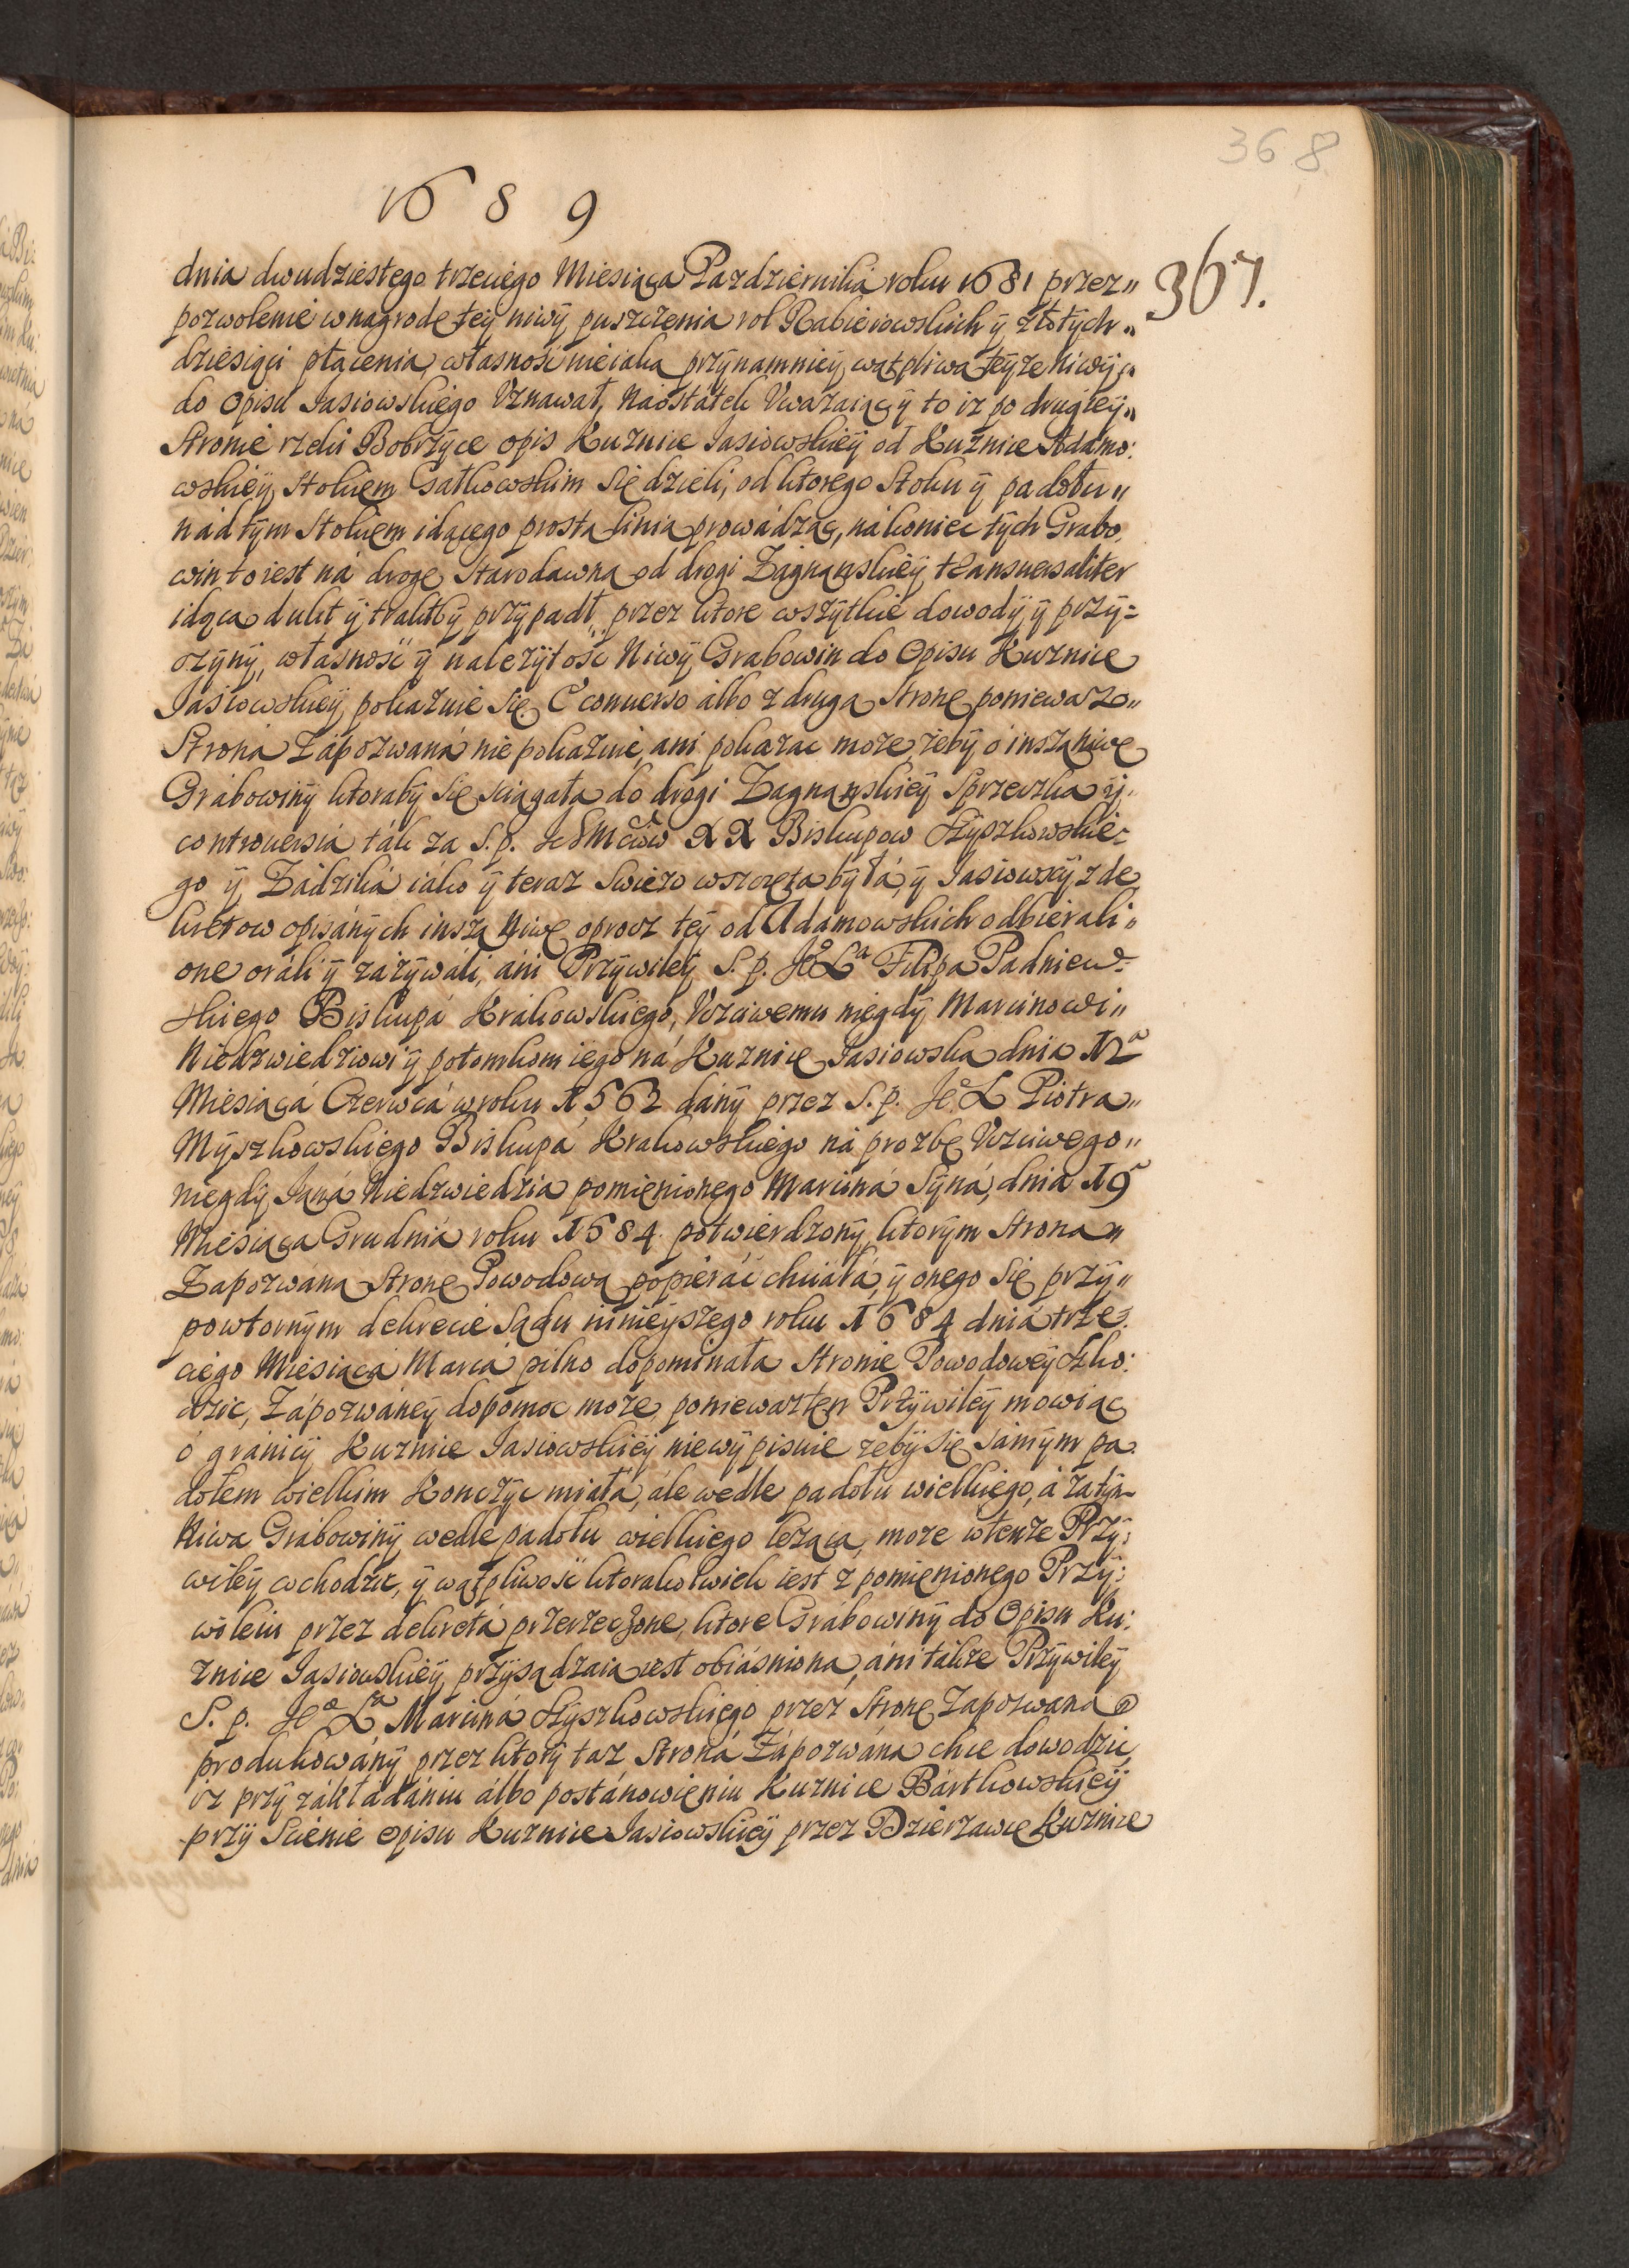 368
1689
367.
dnia dwudziestego trzeciego Miesiąca Pazdziernika roku 1681 przez„
pozwolenie w nagrodę tey niwÿ puszczenia rol Rabieiowskich ÿ złotÿch„
dziesiąci płacenia, własnosc nieiaką przÿnamnieÿ wątpliwą teÿze Niwÿ„
do Opisu Jasiowskiego Vznawał, Náostátek Vwazaiąc ÿ to iz po drugieÿ„
Stronie rzeki Bobrzÿce opis Kuznice Jasiowskieÿ od Kuznice Adamo:
wskieÿ, Stokiem Gałkowskim się dzieli, od ktorego Stoku ÿ padołu„
nád tÿm Stokiem idącego prostą linią prowádząc, ná koniec tÿch Grabo,
win to iest ná drogę Starodawną od drogi Zágnąnskieÿ transuersaliter
idącą dukt ÿ traktbÿ przÿpadł, przez ktore wszÿtkie dowodÿ, ÿ przÿ=
czÿnÿ, własnosc ÿ nalezÿtosc Niwÿ Grabowin do Opisu Kuznice
Jasiowskieÿ pokazuie się. E conuerso álbo z drugą Stronę poniewaz„
Stroná Zápozwaná nie pokazuie, ani pokazac moze, zebÿ o inszą niwę
Grábowinÿ ktorabÿ się sciągała do drogi Zagnąnskieÿ Sprzeczka ÿ
controuersia ták za S. p. JchMciow XX Biskupow Szÿszkowskie=
go ÿ Zádziká iáko ÿ teraz swiezo wszczęta bÿłá, ÿ Jasiowscÿ z de
kretow opisánÿch inszą Niwę oprocz teÿ od Adámowskich odbierali„
onę oráli ÿ zázÿwáli, áni Przÿwileÿ S. p. Je° Lᵃ Filipa Padniew=
skiego Biskupá Krákowskiego, Vczciwemu niegdÿ Marcinowi„
Niedzwiedziowi ÿ potomkom iego ná Kuznicę Jasiowską dnia 12ᵃ
Miesiącá Czerwcá w roku 1562 dánÿ przez S. p. Je° L Piotra„
Mÿszkowskiego Biskupá Krakowskiego ná prozbę Vczciwego„
niegdÿ Janá Niedzwiedzia pomięnionego Marciná Sÿná, dnia 19ᵃ
Miesiąca Grudniá roku 1584. potwierdzonÿ, ktorÿm Strona„
Zapozwána Stronę Powodową popieráć chciáłá, ÿ onego się przÿ„
powtornÿm dekrecie Sądu ninieÿszego roku 1684 dniá trze=
ciego Miesiącá Marcá pilno dopominała Stronie Powodoweÿ szko:
dzic, Zápozwáneÿ dopomoc moze, poniewasz ten Przÿwileÿ mowiąc
o gránicÿ Kuznice Jasiowskieÿ nie wÿpisuie zebÿ się samÿm pa
dołem wielkim Konczÿc miáłá, ále wedle padołu wielkiego, á zátÿm
Niwa Grábowinÿ wedle padołu wielkiego lezącá, moze w tenze Przÿ:
wileÿ wchodzic, ÿ wątpliwosc ktorakolwiek iest z pomięnionego Przÿ:
wileiu przez dekretá przerzeczone, ktore Grábowinÿ do Opisu Ku:
znice Jasiowskieÿ przÿsądzaią iest obiásniona, áni tákze Przÿwileÿ
S. p. Je° Lᵃ Marciná Szÿszkowskiego przez Stronę Zapozwaną
produkowánÿ przez ktorÿ taz Stroná Zápozwána chce dowodzic
iz przÿ zákładániu álbo postánowięniu Kuznice Bártkowskieÿ
przÿ Scienie Opisu Kuznice Jasiowskieÿ przez Dzierzawcę Kuznice